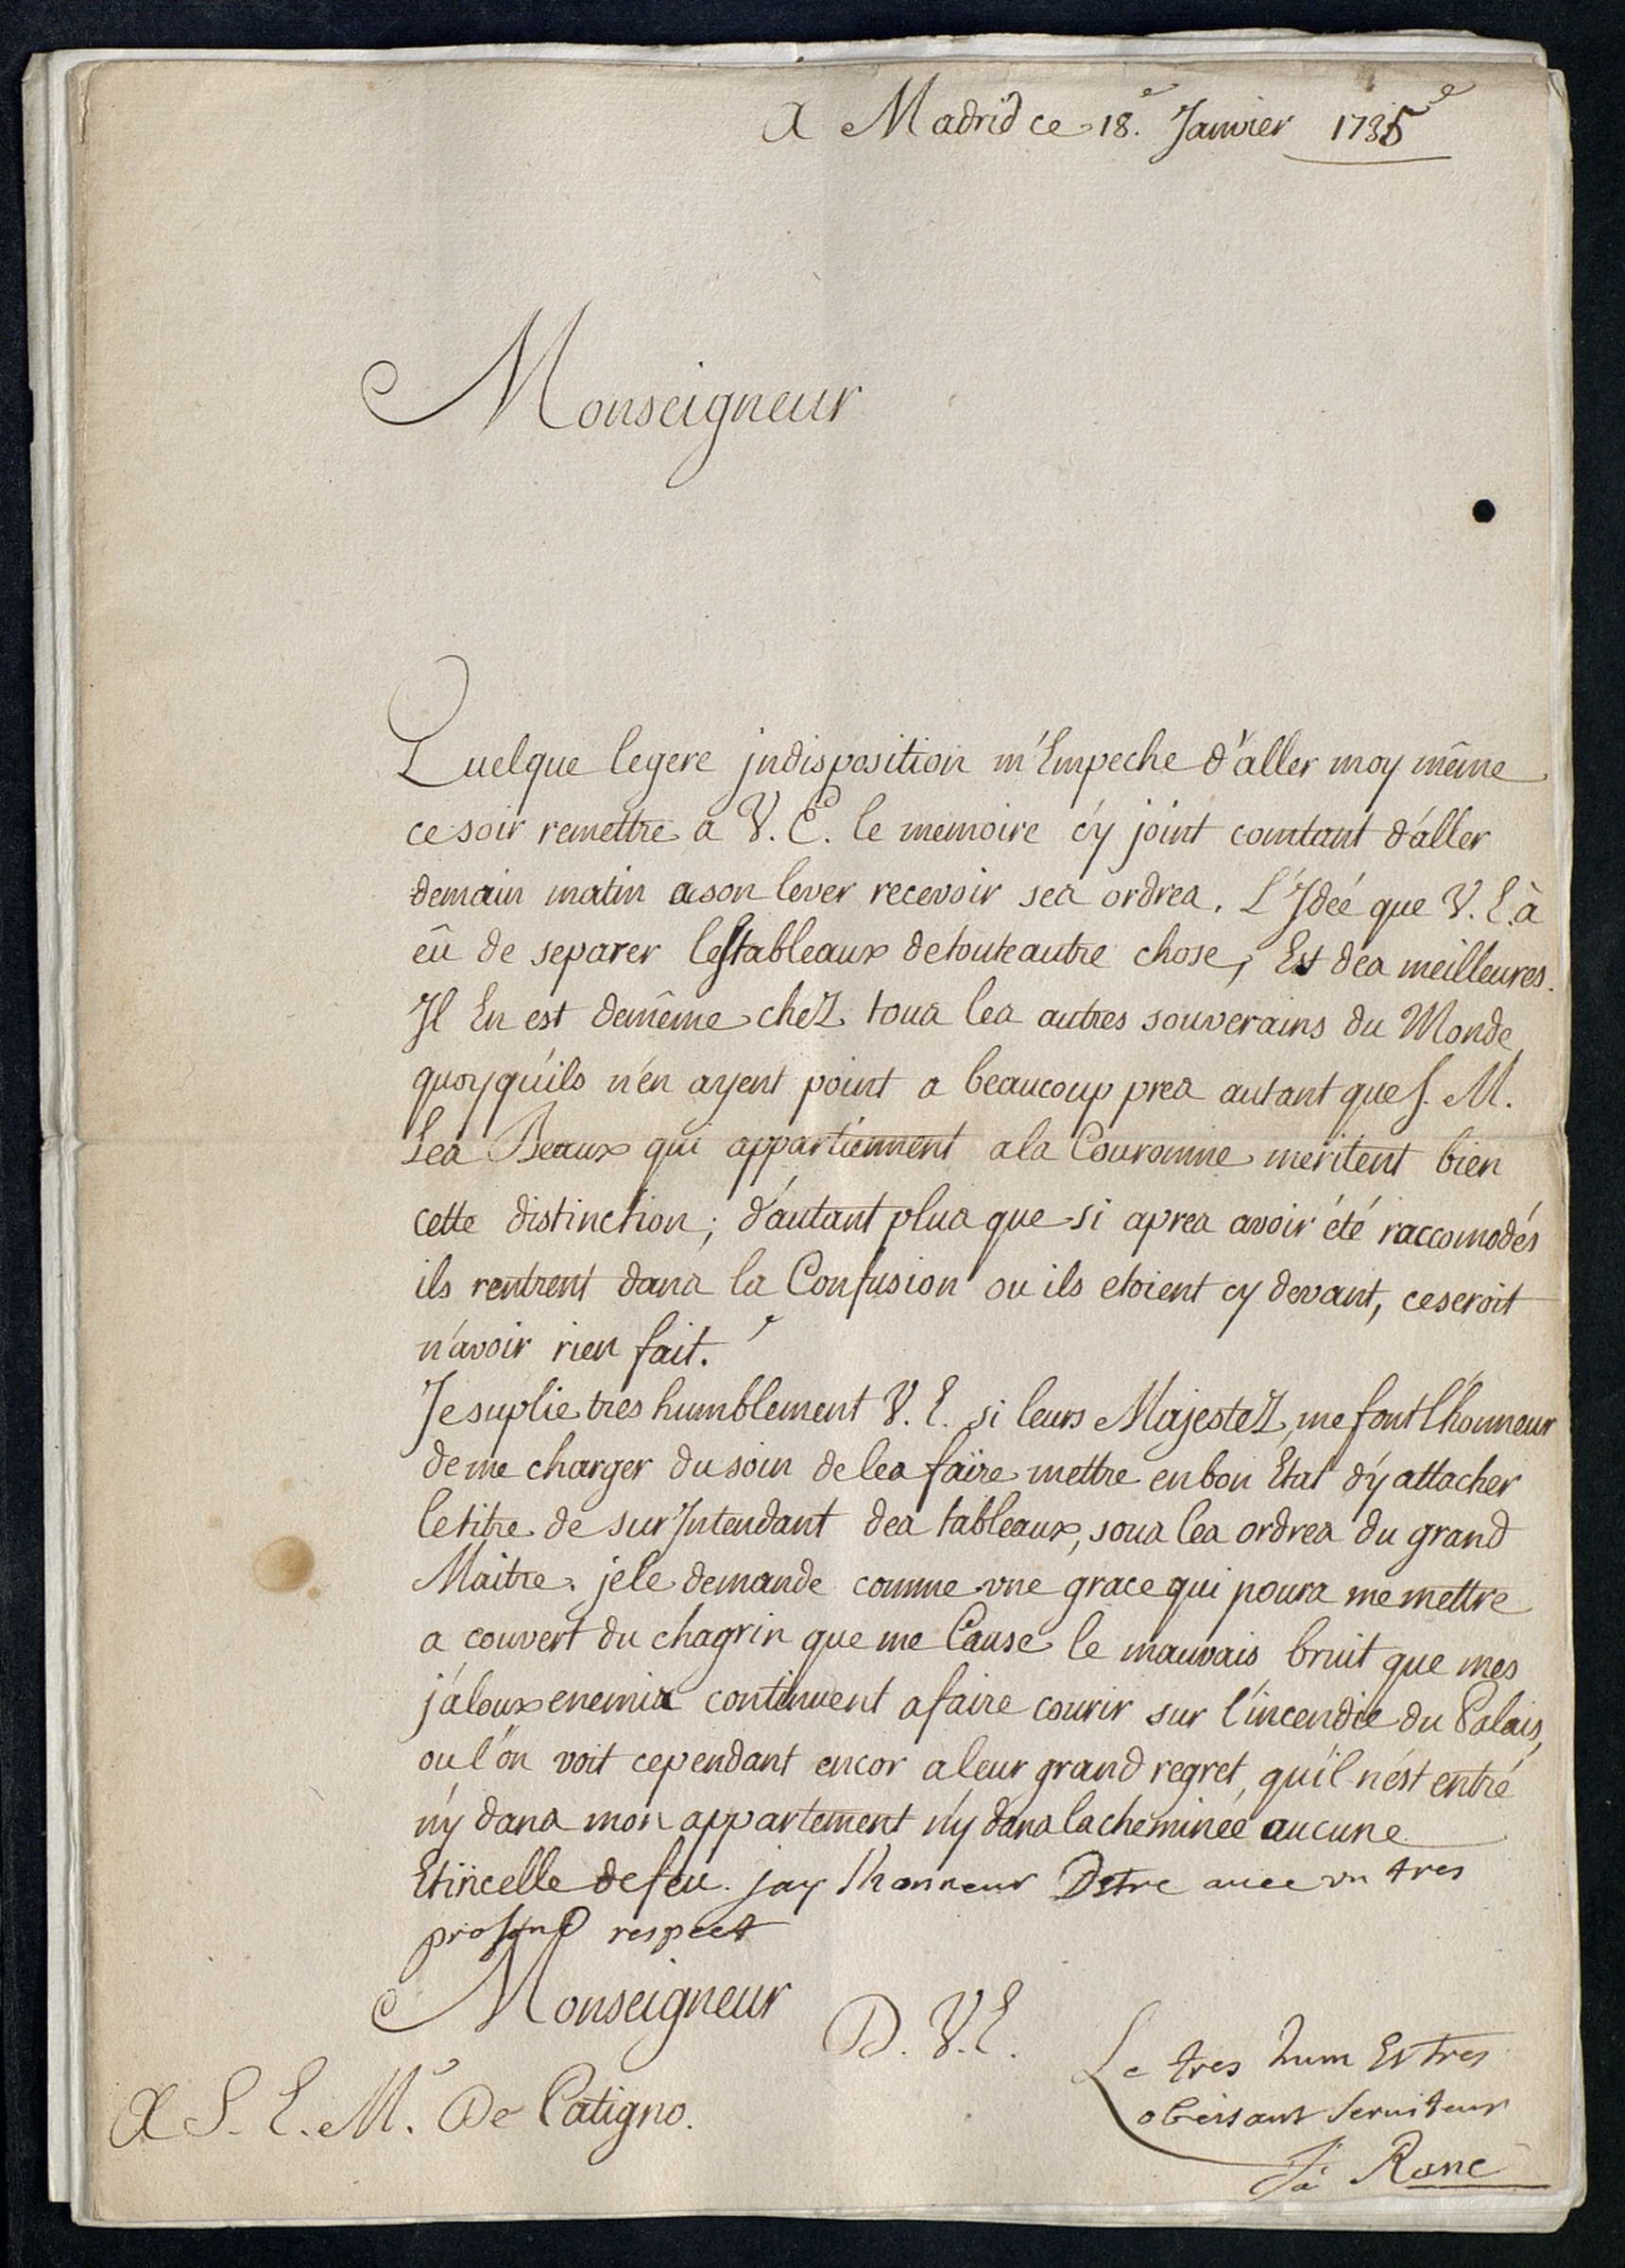 A Madrid ce 18.e Janvier 1735e
Monseigneur
Quelque legere jndisposition m'Empeche d'aller moy même
ce soir remettre a V. E. le memoire c'y joint comtant d'aller
demain matin a son lever recevoir ses ordres. L'Jdée que V. E. à
eû de separer les tableaux de toute autre chose, Est des meilleures.
Jl En est de même chez tous les autres souverains du Monde
quoy qu'ils n'en ayent point a beaucoup pres autant que S. M.
Les Beaux qui appartiennent a la Couronne meritent bien
cette distinction; d'autant plus que si apres avoir été raccomodés
ils rentrent dans la Confusion ou ils etoient cy devant, ce seroit
n'avoir rien fait.
Je suplie tres humblement V. E. si leurs Majestez, me font lhonneur
de me charger du soin de les faire mettre en bon Etat d'y attacher
le titre de surJntendant des tableaux, sous les ordres du grand
Maitre. je le demande comme vne grace qui poura me mettre
a couvert du chagrin que me Cause le mauvais bruit que mes
jaloux enemis continuent a faire courir sur l'incendie du Palais,
ou l'on voit cependant encor a leur grand regret, qu'il n'est entré
n'y dans mon appartement n'y dans la cheminée aucune
Etincelle de feu. jay lhonneur Destre auec vn tres
profond respect
Monseigneur
D. V. E.
Le tres hum Et tres
obeissant seruiteur
Ranc
A S. E. Mr. De Patigno.